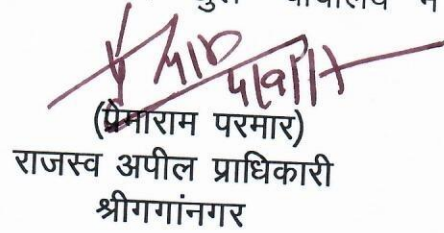 4/9/17
(प्रेमाराम परमार)
राजस्व अपील प्राधिकारी
श्रीगगांनगर